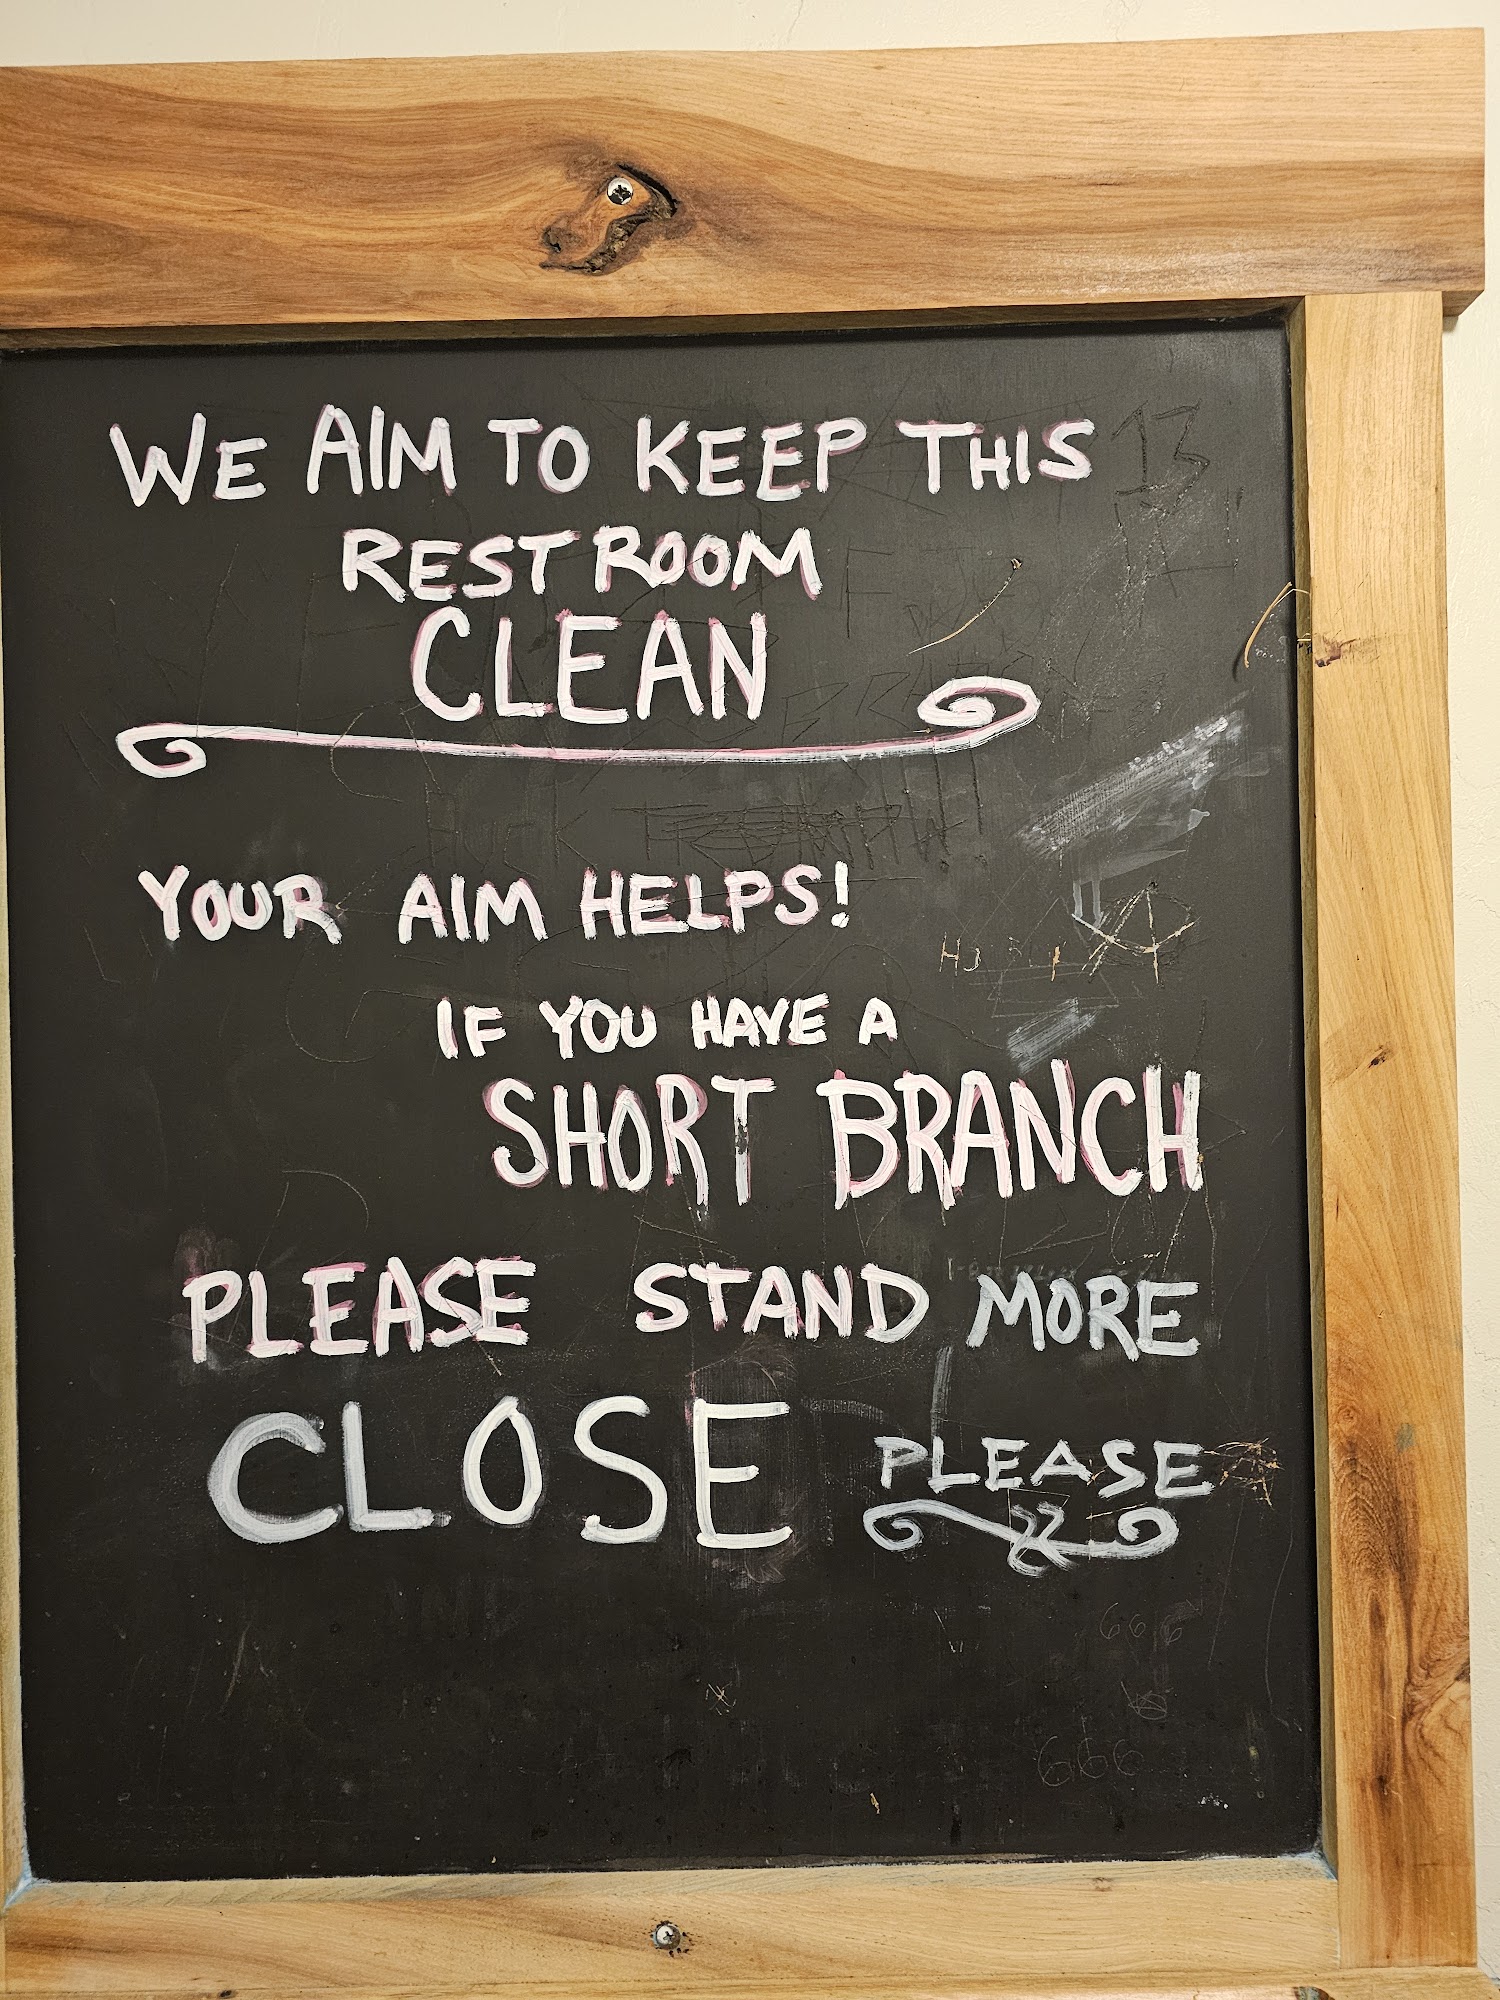 WE AIM TO KEEP THIS 13
RESTROOM
CLEAN
YOUR AIM HELPS!
IF YOU HAVE A
SHORT BRANCH
PLEASE STAND MORE
CLOSE PLEASE
666
666